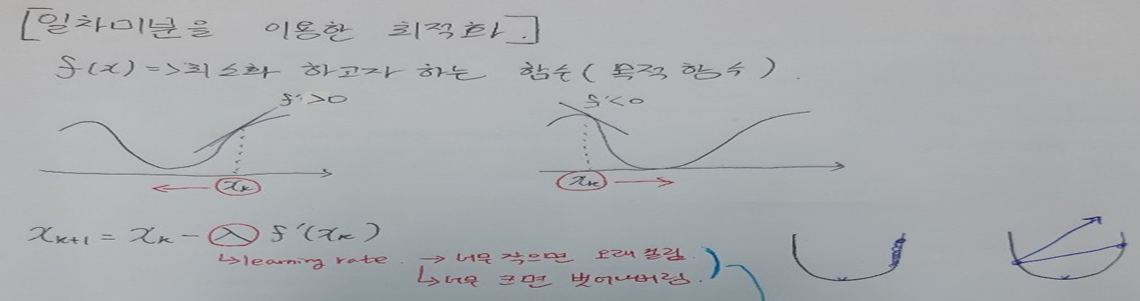 [일차미분을 이용한 최적화.]
f(x) => 최소화 하고자 하는 함수 (목적 함수).
f'>0
f'<0
xₖ
xₖ
xₖ₊₁ = xₖ - λ f'(xₖ)
↳learning rate. → 너무 작으면 오래 걸림.
↳너무 크면 벗어나버림.